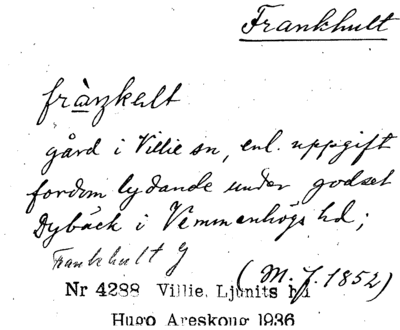 Frankhult
fràŋkelt
gård i Villie sn, enl. uppgift
fordom lydande under godset
Dybäck i Vemmenhögs hd;
Frankhult G
(M. J. 1852)
Nr 4288 Villie, Ljunits hd
Hugo Areskoug 1936